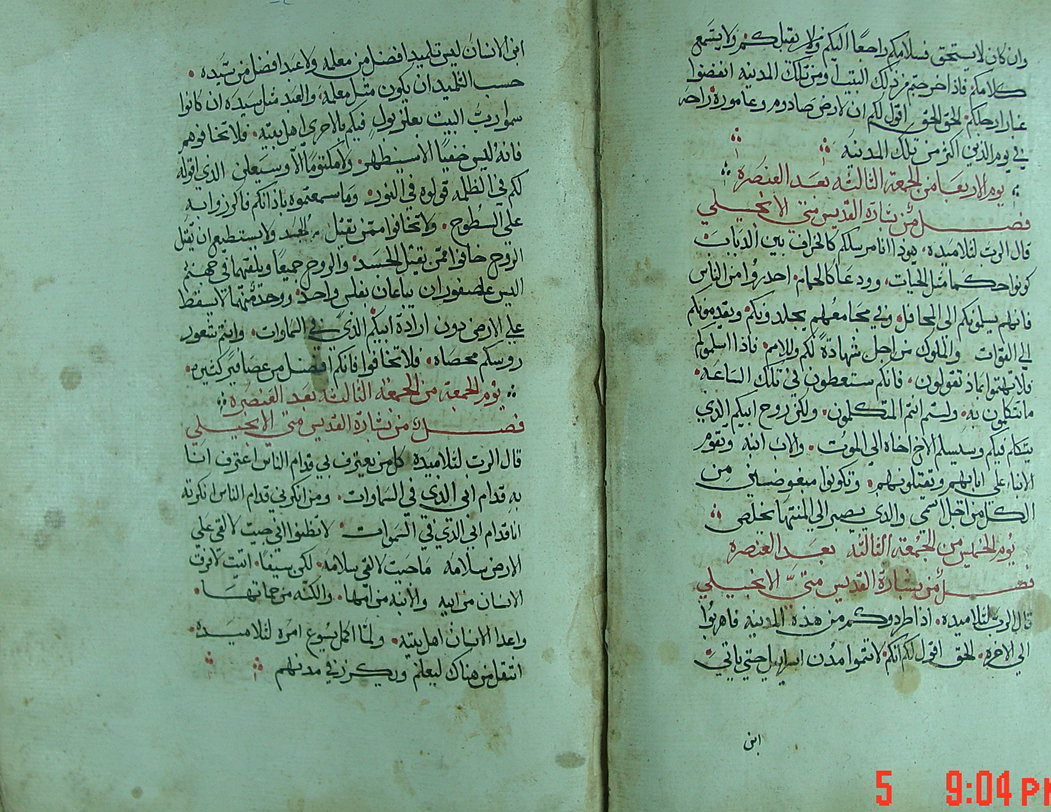 وان كان لا يستحق فسلامكم راجعًا اليكم ومن لا يقبلكم ولا يسمع
كلامكم فاذا خرجتم من ذلك البيت او من تلك المدينه انفضوا
غبار ارجلكم الحق الحق اقول لكم ان لارض صادوم وعامورة راحه
في يوم الدين اكثر من تلك المدينه
يوم الاربعا من الجمعة الثالثه بعد العنصرة
فصل من بشارة القديس متي الانجيلي
قال الرب لتلاميذه هوذا انا مرسلكم كالخراف بين الذياب
كونوا حكما مثل الحيات وودعا كالحمام احدروا من الناس
فانهم يسلمونكم الى المحافل وفي مجامعهم يجلدونكم ويقدمونكم
الي القوات والملوك من اجل شهادةً لكم وللامم فاذا اسلموكم
فلا تهتموا بماذا تقولون فانكم ستعطون في تلك الساعه
ما تتكلمون به ولستم انتم المتكلمون ولكن روح ابيكم الذي
يتكلم فيكم وسيسلم الاخ اخاه الي الموت والاب ابنه وتقوم
الابنا علي ابايهم ويقتلونهم وتكونوا مبغوضين من
الكل من اجل اسمي والذي يصبر الي المنتها يخلص
يوم الخميس من الجمعة الثالثه بعد العنصرة
فصل من بشارة القديس متي الانجيلي
قال الرب لتلاميذه اذا طردوكم من هذه المدينه فاهربوا
الي الاخره الحق اقول لكم انكم لا تتموا مدن اسراييل حتي ياتي
ابن
ابن الانسان ليس تلميذ افضل من معلمه ولا عبدا افضل من سيده
حسب التلميذ ان يكون مثل معلمه والعبد مثل سيده ان كانوا
سموا رب البيت بعلزبول فكم بالاحرى اهل بيته فلا تخافوهم
فانه ليس خفيًا الا سيظهر ولا مكتومًا الا وسيعلن الذي اقوله
لكم في الظلمه قولوه في النور وما سمعتموه باذانكم فاكرزوا به
على السطوح ولا تخافوا ممن يقتل الجسد ولا يستطيع ان يقتل
الروح خافوا ممن يقتل الجسد والروح جميعًا ويلقيهما في جهنم
اليس عصفوران يباعان بفلس واحد وواحد منهما لا يسقط
علي الارض دون ارادة ابيكم الذي في السماوات وانتم شعور
روسكم محصاه فلا تخافوا فانكم افضل من عصافير كثيره
يوم الجمعة من الجمعة الثالثه بعد العنصرة
فصل من بشارة القديس متي الانجيلي
قال الرب لتلاميذه كل من يعترف بي قدام الناس اعترف انا
به قدام ابي الذي في السماوات ومن انكرني قدام الناس انكرته
انا قدام ابي الذي في السموات لا تظنوا اني جيت لالقي علي
الارض سلامه ما جيت لالقي سلامه لكن سيفًا اتيت لافرق
الانسان من ابيه والابنه من امها والكنه من حماتها
واعدا الانسان اهل بيته ولما اكمل يسوع امره لتلاميذه
انتقل من هناك ليعلم ويكرز في مدنهم
5 9:04 PM